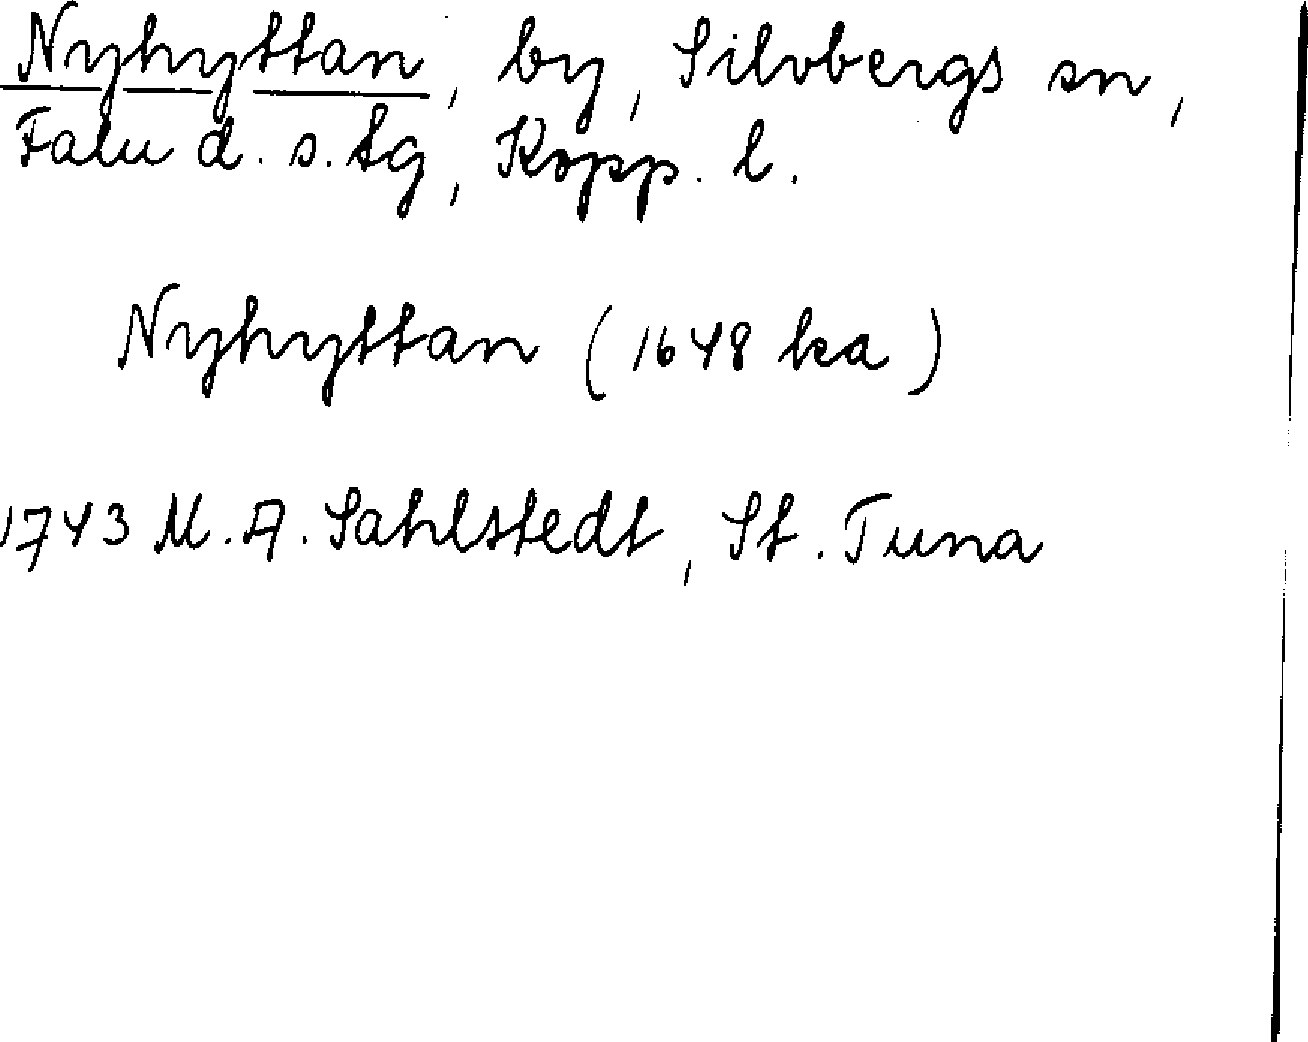 Nyhyttan, by, Silvbergs sn,
Falu d. s. tg, Kopp. l.
Nyhyttan (1648 ka)
1743 M. A. Sahlstedt, St. Tuna